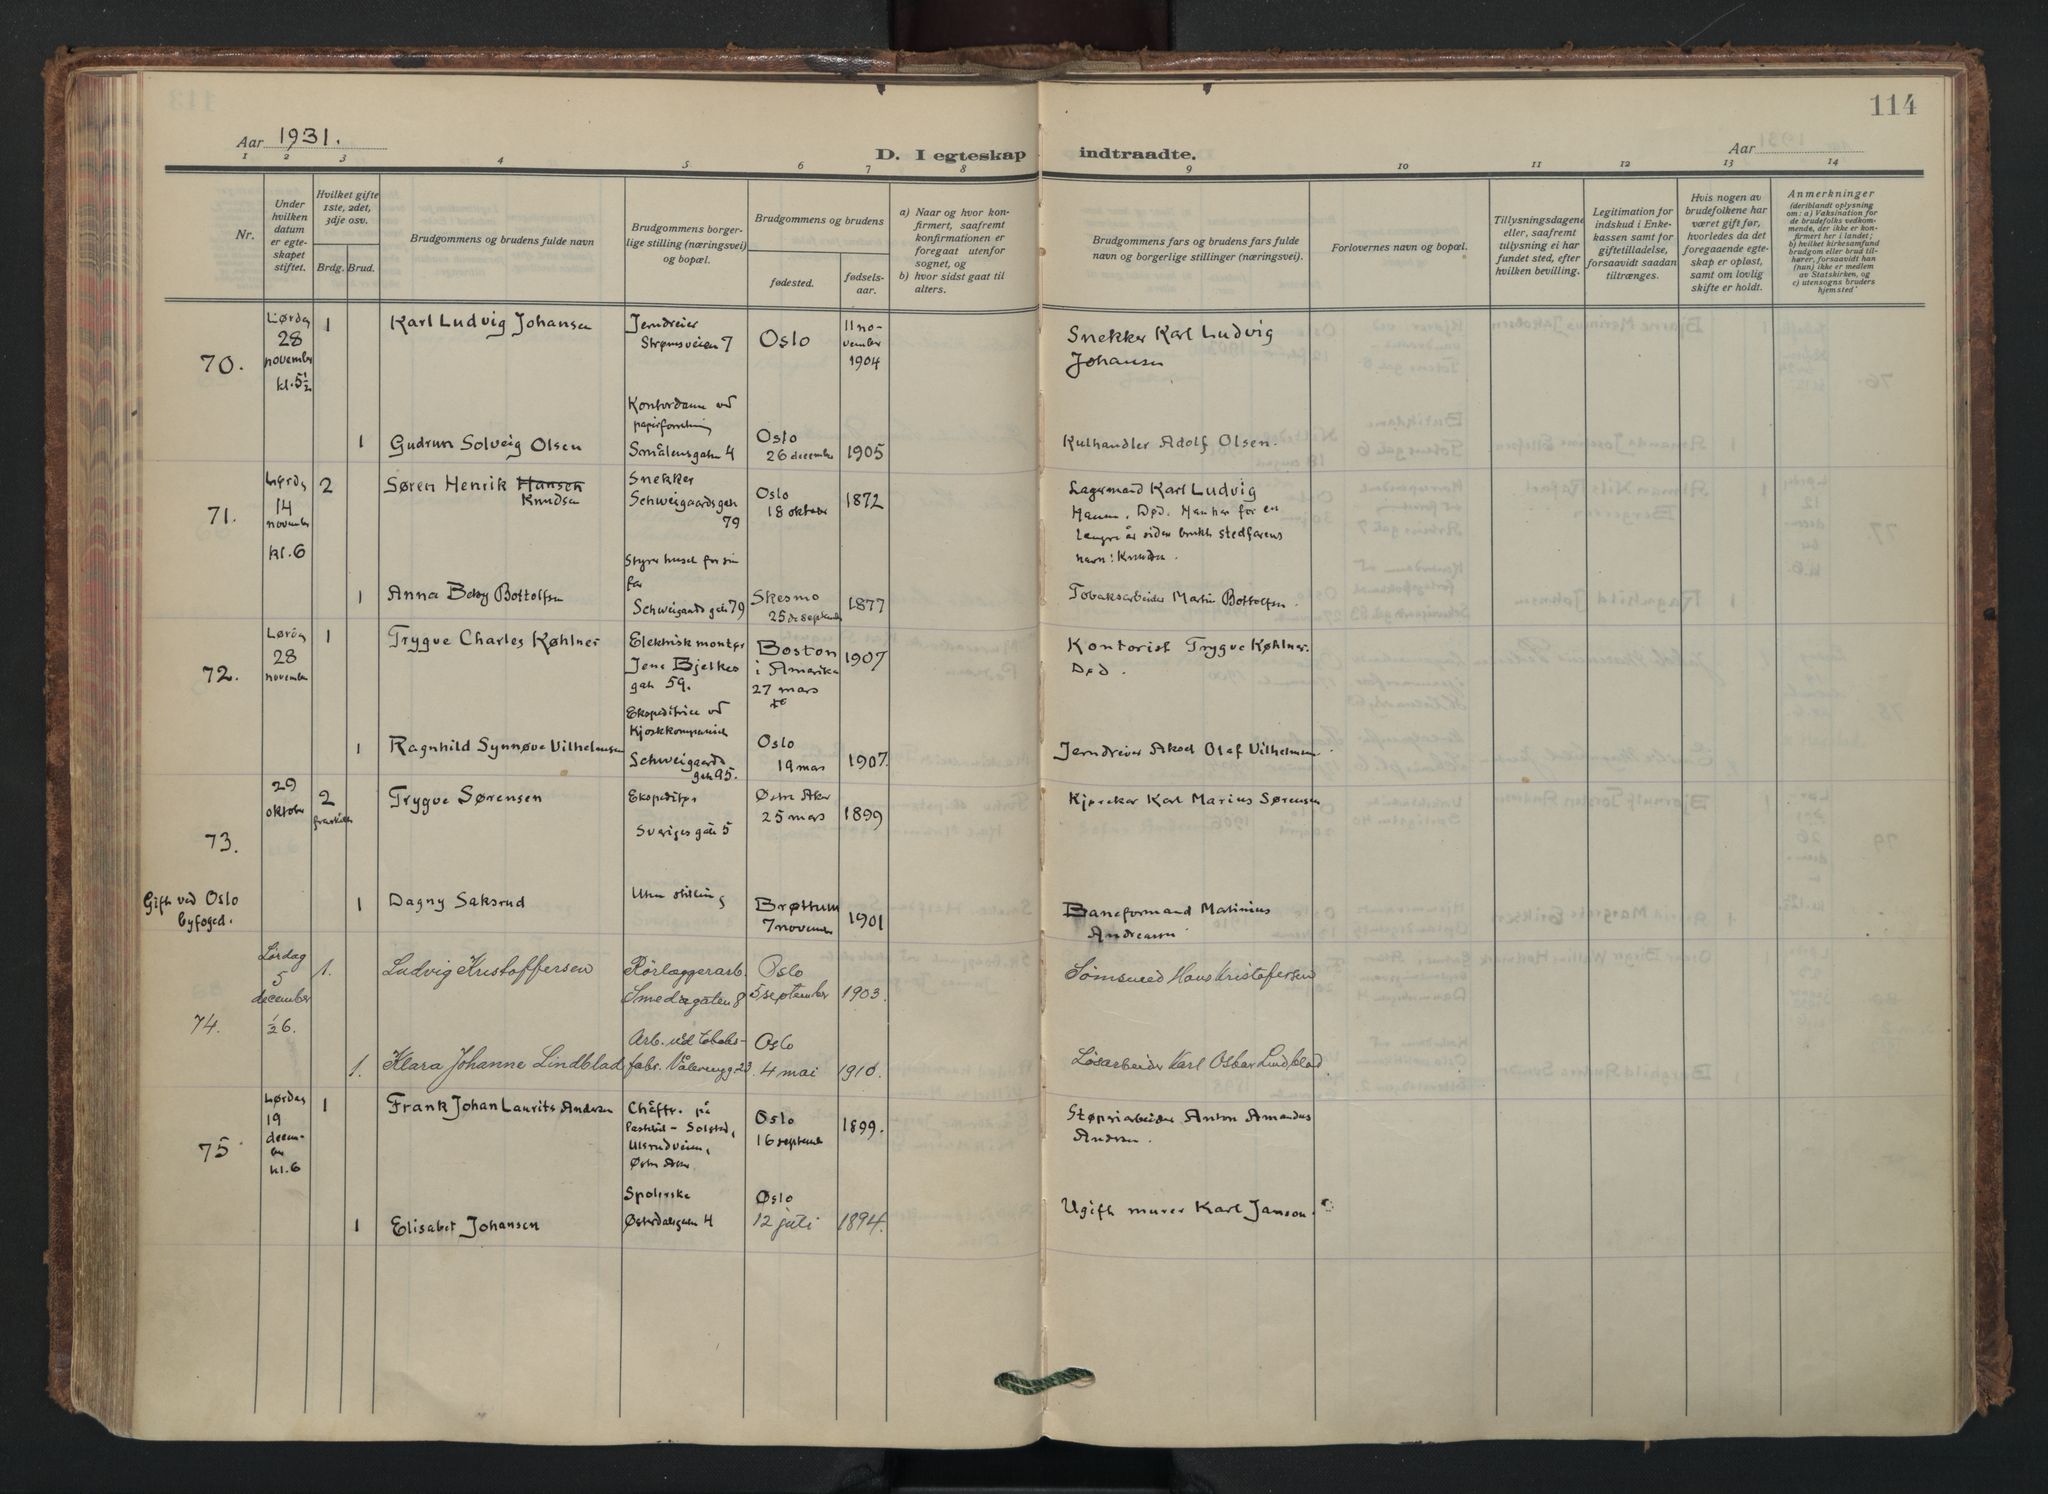 114
Aar 1931.
D. I egteskap indtraadte.
Aar
1 2 3 4 5 6 7 8 9 10 11 12 13 14
Nr.
Under hvilken datum er egteskapet stiftet.
Hvilket gifte 1ste, 2det, 3dje osv.
Brdg. Brud.
Brudgommens og brudens fulde navn
Brudgommens borgerlige stilling (næringsvei) og bopæl.
Brudgommens og brudens
fødested.
fødselsaar.
a) Naar og hvor konfirmert, saafremt konfirmationen er foregaat utenfor sognet, og
b) hvor sidst gaat til alters.
Brudgommens fars og brudens fars fulde navn og borgerlige stillinger (næringsvei).
Forlovernes navn og bopæl.
Tillysningsdagene eller, saafremt tillysning ei har fundet sted, efter hvilken bevilling.
Legitimation for indskud i Enkekassen samt for giftetilladelse, forsaavidt saadan tiltrænges.
Hvis nogen av brudefolkene har været gift før, hvorledes da det foregaaende egteskap er opløst, samt om lovlig skifte er holdt.
Anmerkninger
(deriblandt oplysning om: a) Vaksination for de brudefolks vedkommende, der ikke er konfirmert her i landet;
b) hvilket kirkesamfund brudgom eller brud tilhører, forsaavidt han (hun) ikke er medlem av Statskirken, og
c) utensogns bruders hjemsted
70.
Lørdag 28 november kl. 5½
1
Karl Ludvig Johansen
Jerndreier
Strømsveien 7
Oslo
11 november 1904
Snekker Karl Ludvig
Johansen
1
Gudrun Solveig Olsen
Kontordame ved
papirforretning
Smålensgaten 4
Oslo
26 december
1905
Kulhandler Adolf Olsen.
71.
Lørdag 14 november kl. 6
2
Søren Henrik Hansen
Knudsen
Snekker
Schweigaardsgaten
79
Oslo
18 oktober
1872
Lagermand Karl Ludvig
Hansen. Død. Han har for en
længre år siden brukt stedfarens
navn: Knudsen.
1
Anna Betsy Bottolfsen
Styrer huset for sin
far
Schweigaards gate 79
Skesmo
25de september
1877
Tobaksarbeider Martin Bottolfsen.
72.
Lørdag 28 november
1
Trygve Charles Køhlner
Elektrisk montør
Jens Bjelkes
gate 59.
Boston
i Amerika
27 mars
1907
Kontorist Trygve Køhlner.
Død.
1
Ragnhild Synnøve Vilhelmsen
Ekspeditrice ved
Kjoskkompaniet
Schweigaards
gate 95.
Oslo
19 mars
1907.
Jerndreier Aksel Olaf Vilhelmsen
73.
29 oktober
2
fraskilt
Trygve Sørensen
Ekspeditør
Sveriges gate 5
Østre Aker
25 mars
1899
Kjørekar Karl Marius Sørensen
Gift ved Oslo
byfoged.
1
Dagny Saksrud
Uten stilling
Brøttum
7 november
1901
Baneformand Matinius
Andreassen
74.
Lørdag
5
december
½6.
1.
Ludvig Kristoffersen
Rörlæggerarb.
Smedsgaten 8
Oslo
5 september
1903.
Sømsmed Hans Kristofersen
1.
Klara Johanne Lindblad
Arb. ved tobaks-
fabr. Vålerengg. 23
Oslo
4 mai
1910.
Løsarbeider Karl Oskar Lindblad
75
Lørdag 19 december kl. 6
1
Frank Johan Laurits Andersen
Chåffr. på
Pastbil - Solstad,
Ulsrudveien,
Østre Aker
Oslo
16 september
1899.
Støperiarbeider Anton Amandus
Andersen.
1
Elisabet Johansen
Spolerske
Østerdalsgaten 4
Oslo
12 juli
1894.
Ugift murer Karl Janson.